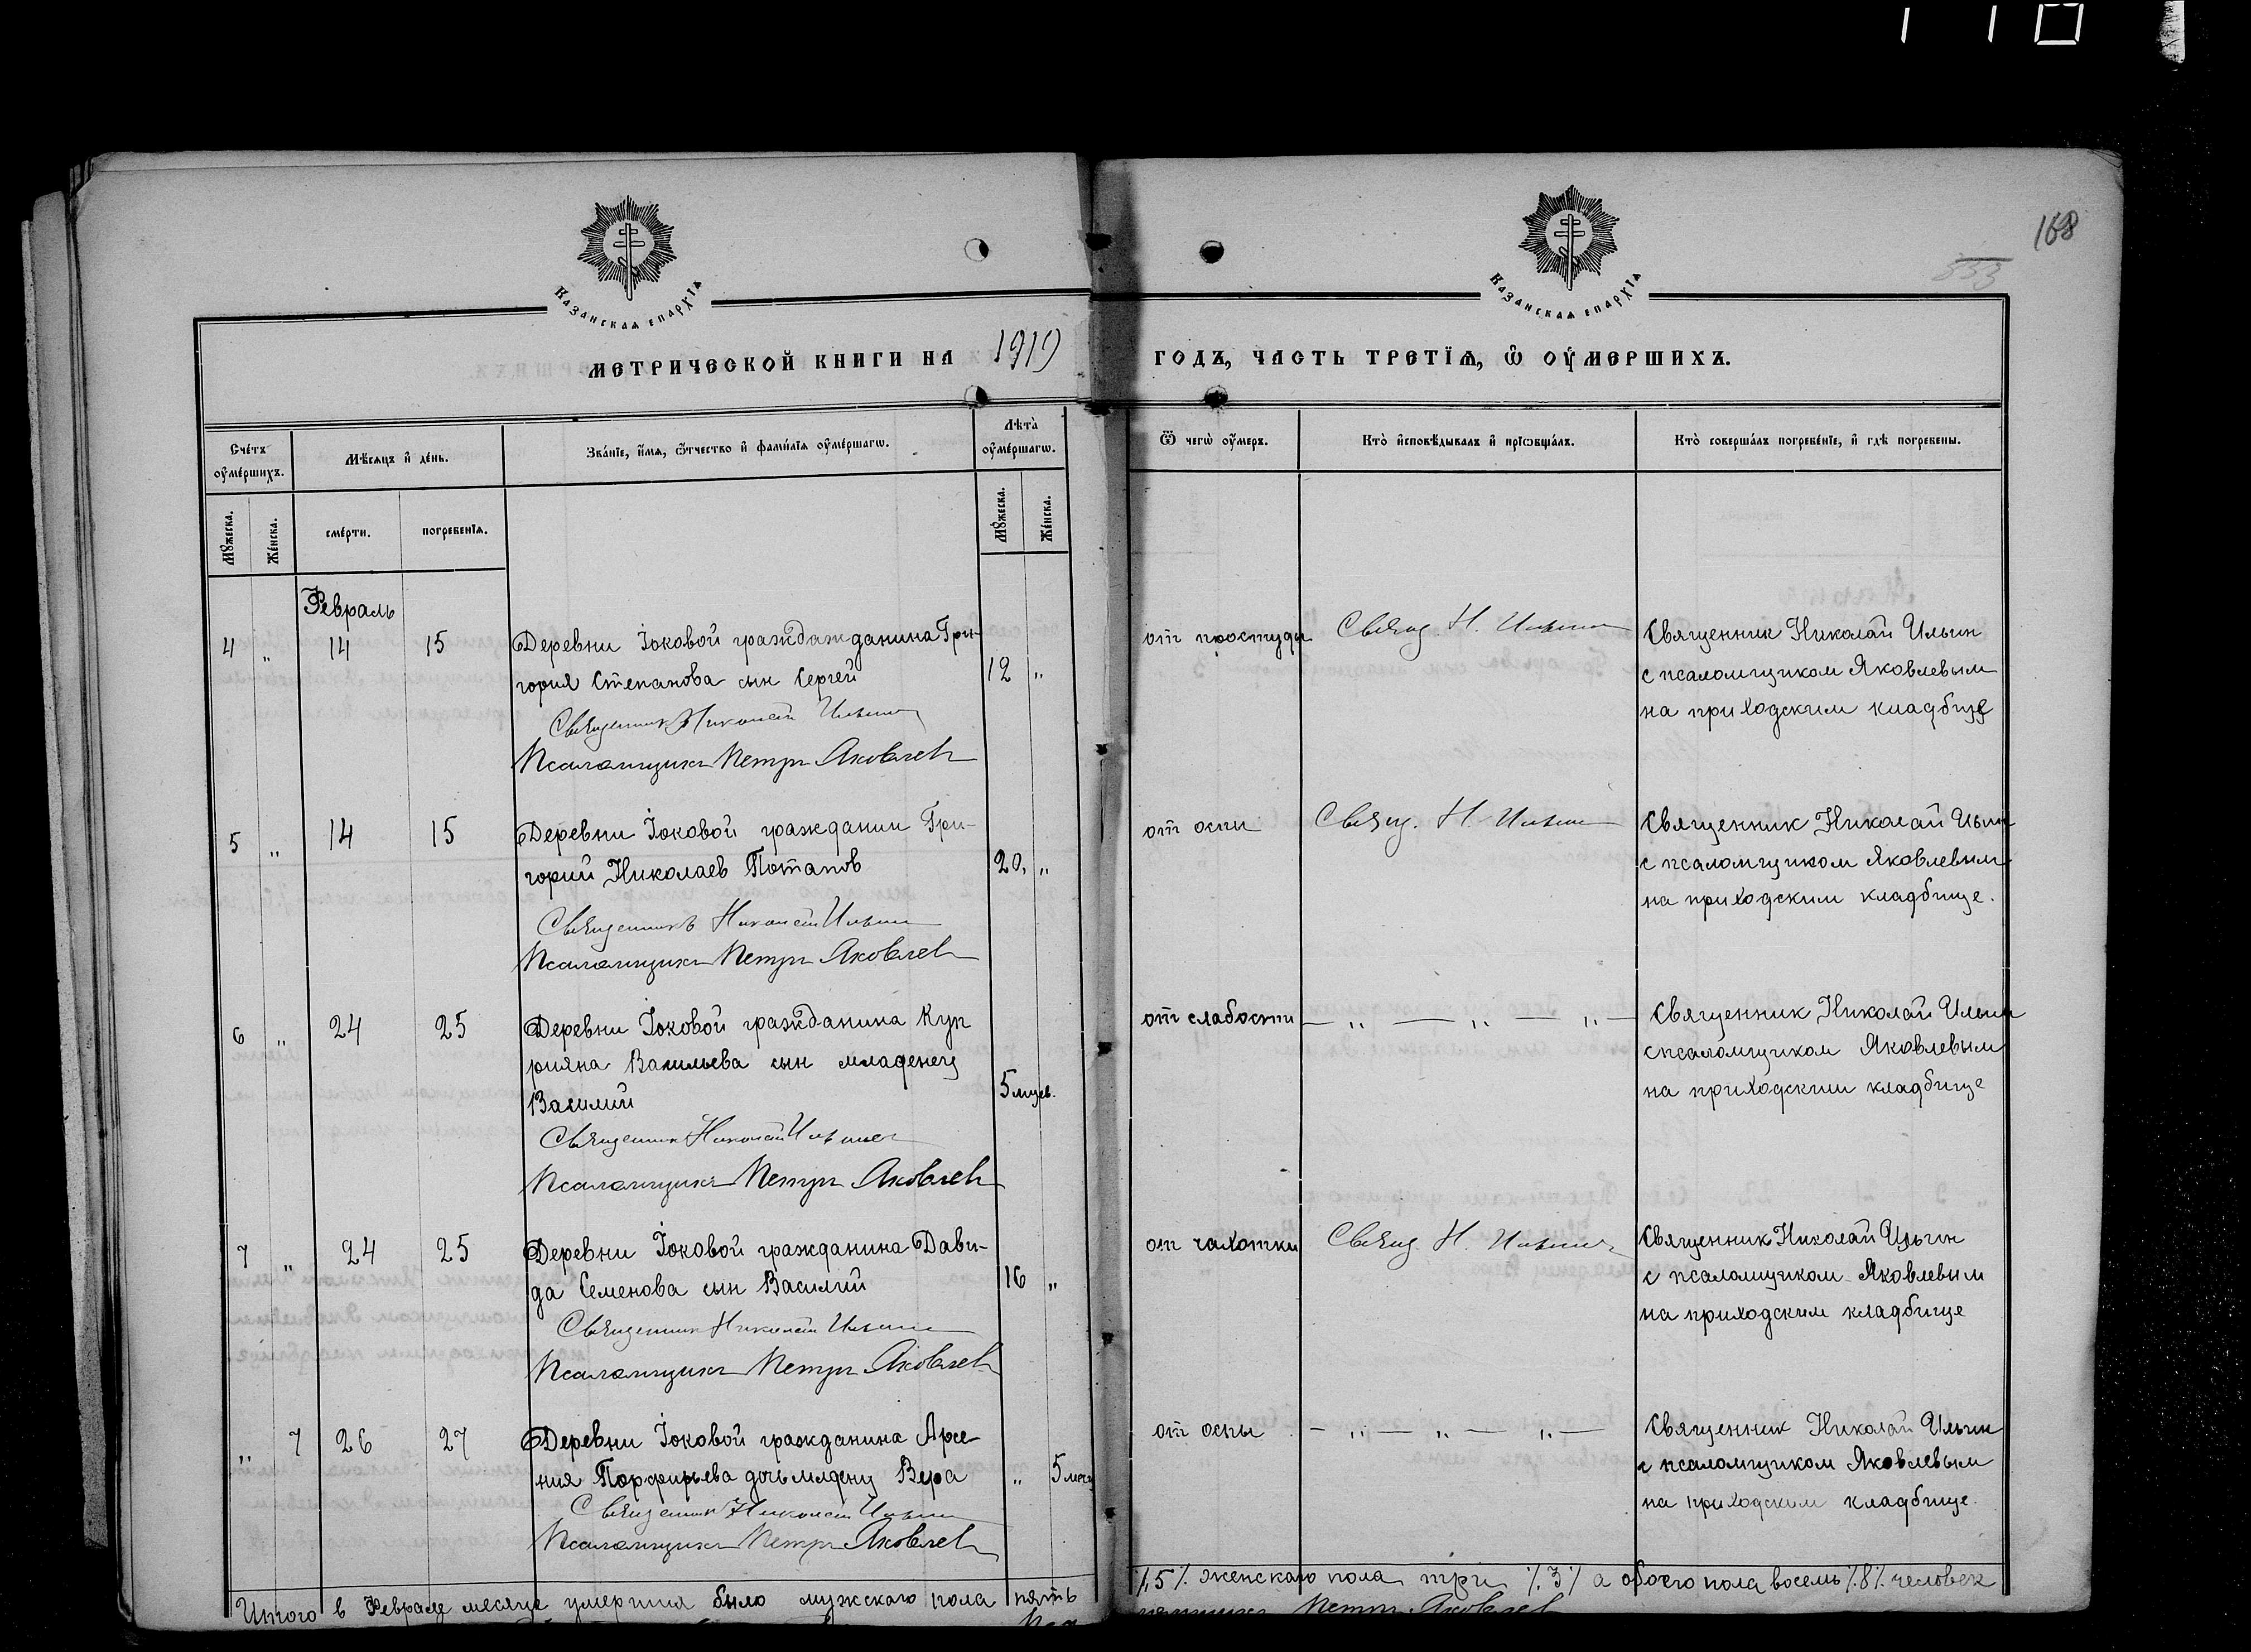 168
553
Казанская епархїѧ
Казанская епархїѧ
МЕТРИЧЕСКОЙ КНИГИ НА 1919 ГОДЪ, ЧАСТЬ ТРЕТЇѦ, Ѿ ОУМЕРШИХЪ.
Сче́тъ оумершихъ.
Мѣсѧцъ и҆ де́нь.
Зва́нїе, и҆́мѧ, ѻ҆́тчество и҆ фами́лїѧ оумершагѡ.
Лѣта̀ оумершагѡ.
Ѿ чегѡ̀ оумеръ.
Кто̀ и҆сповѣ́дывалъ и҆ прїѡбща́лъ.
Кто̀ соверша́лъ погребе́нїе, и҆ гдѣ̀ погребены.
Мꙋжеска.
Же́нска.
сме́рти.
погребенїѧ.
Мꙋжеска.
Же́нска.
Февраль
4 „ 14 15 Деревни Іоковой гражданжданина Гри-
гория Степанова сын Сергей
12 „
Священник Николай Ильин
Псаломщикъ Петръ Яковлев
от простуды
Свящ. Н. Ильин
Священник Николай Ильин
с псаломщиком Яковлевым
на приходским кладбище
5 „ 14 15 Деревни Іоковой гражданин Гри-
горий Николаев Потапов
20, „
Священникъ Николай Ильин
Псаломщикъ Петръ Яковлев
от оспы
Свящ. Н. Ильин
Священник Николай Ильин
с псаломщиком Яковлевым
на приходским кладбище.
6 „ 24 25 Деревни Іоковой гражданина Куп
рияна Васильева сын младенец
Василий
5 мцев.
Священник Николай Ильин
Псаломщикъ Петръ Яковлев
от слабости — „ — „ — „ —
Священник Николай Ильин
с псаломщиком Яковлевым
на приходским кладбище
7 „ 24 25 Деревни Іоковой гражданина Дави-
да Семенова сын Василий
16 „
Священник Николай Ильин
Псаломщикъ Петръ Яковлев
от чахотки
Свящ. Н. Ильин
Священник Николай Ильин
с псаломщиком Яковлевым
на приходским кладбище
„ 7 26 27 Деревни Іоковой гражданина Арсе-
ния Порфирьева дочь младенц Вера
„ 5 мес
Священник Николай Ильин
Псаломщикъ Петръ Яковлев
от оспы — „ — „ — „ —
Священник Николай Ильин
с псаломщиком Яковлевым
на приходским кладбище.
Итого в Феврале месяце умерших было мужскаго пола пять
/.5/. женскаго пола три /.3/. а обоего пола восемь /.8/. человек
Петръ Яковлев